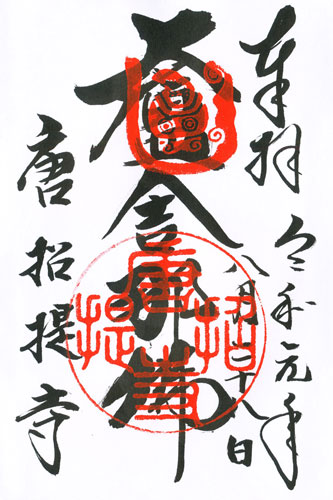 奉拝
令和元年
八月二十八日
盧舎那佛
唐招提寺
唐招提寺